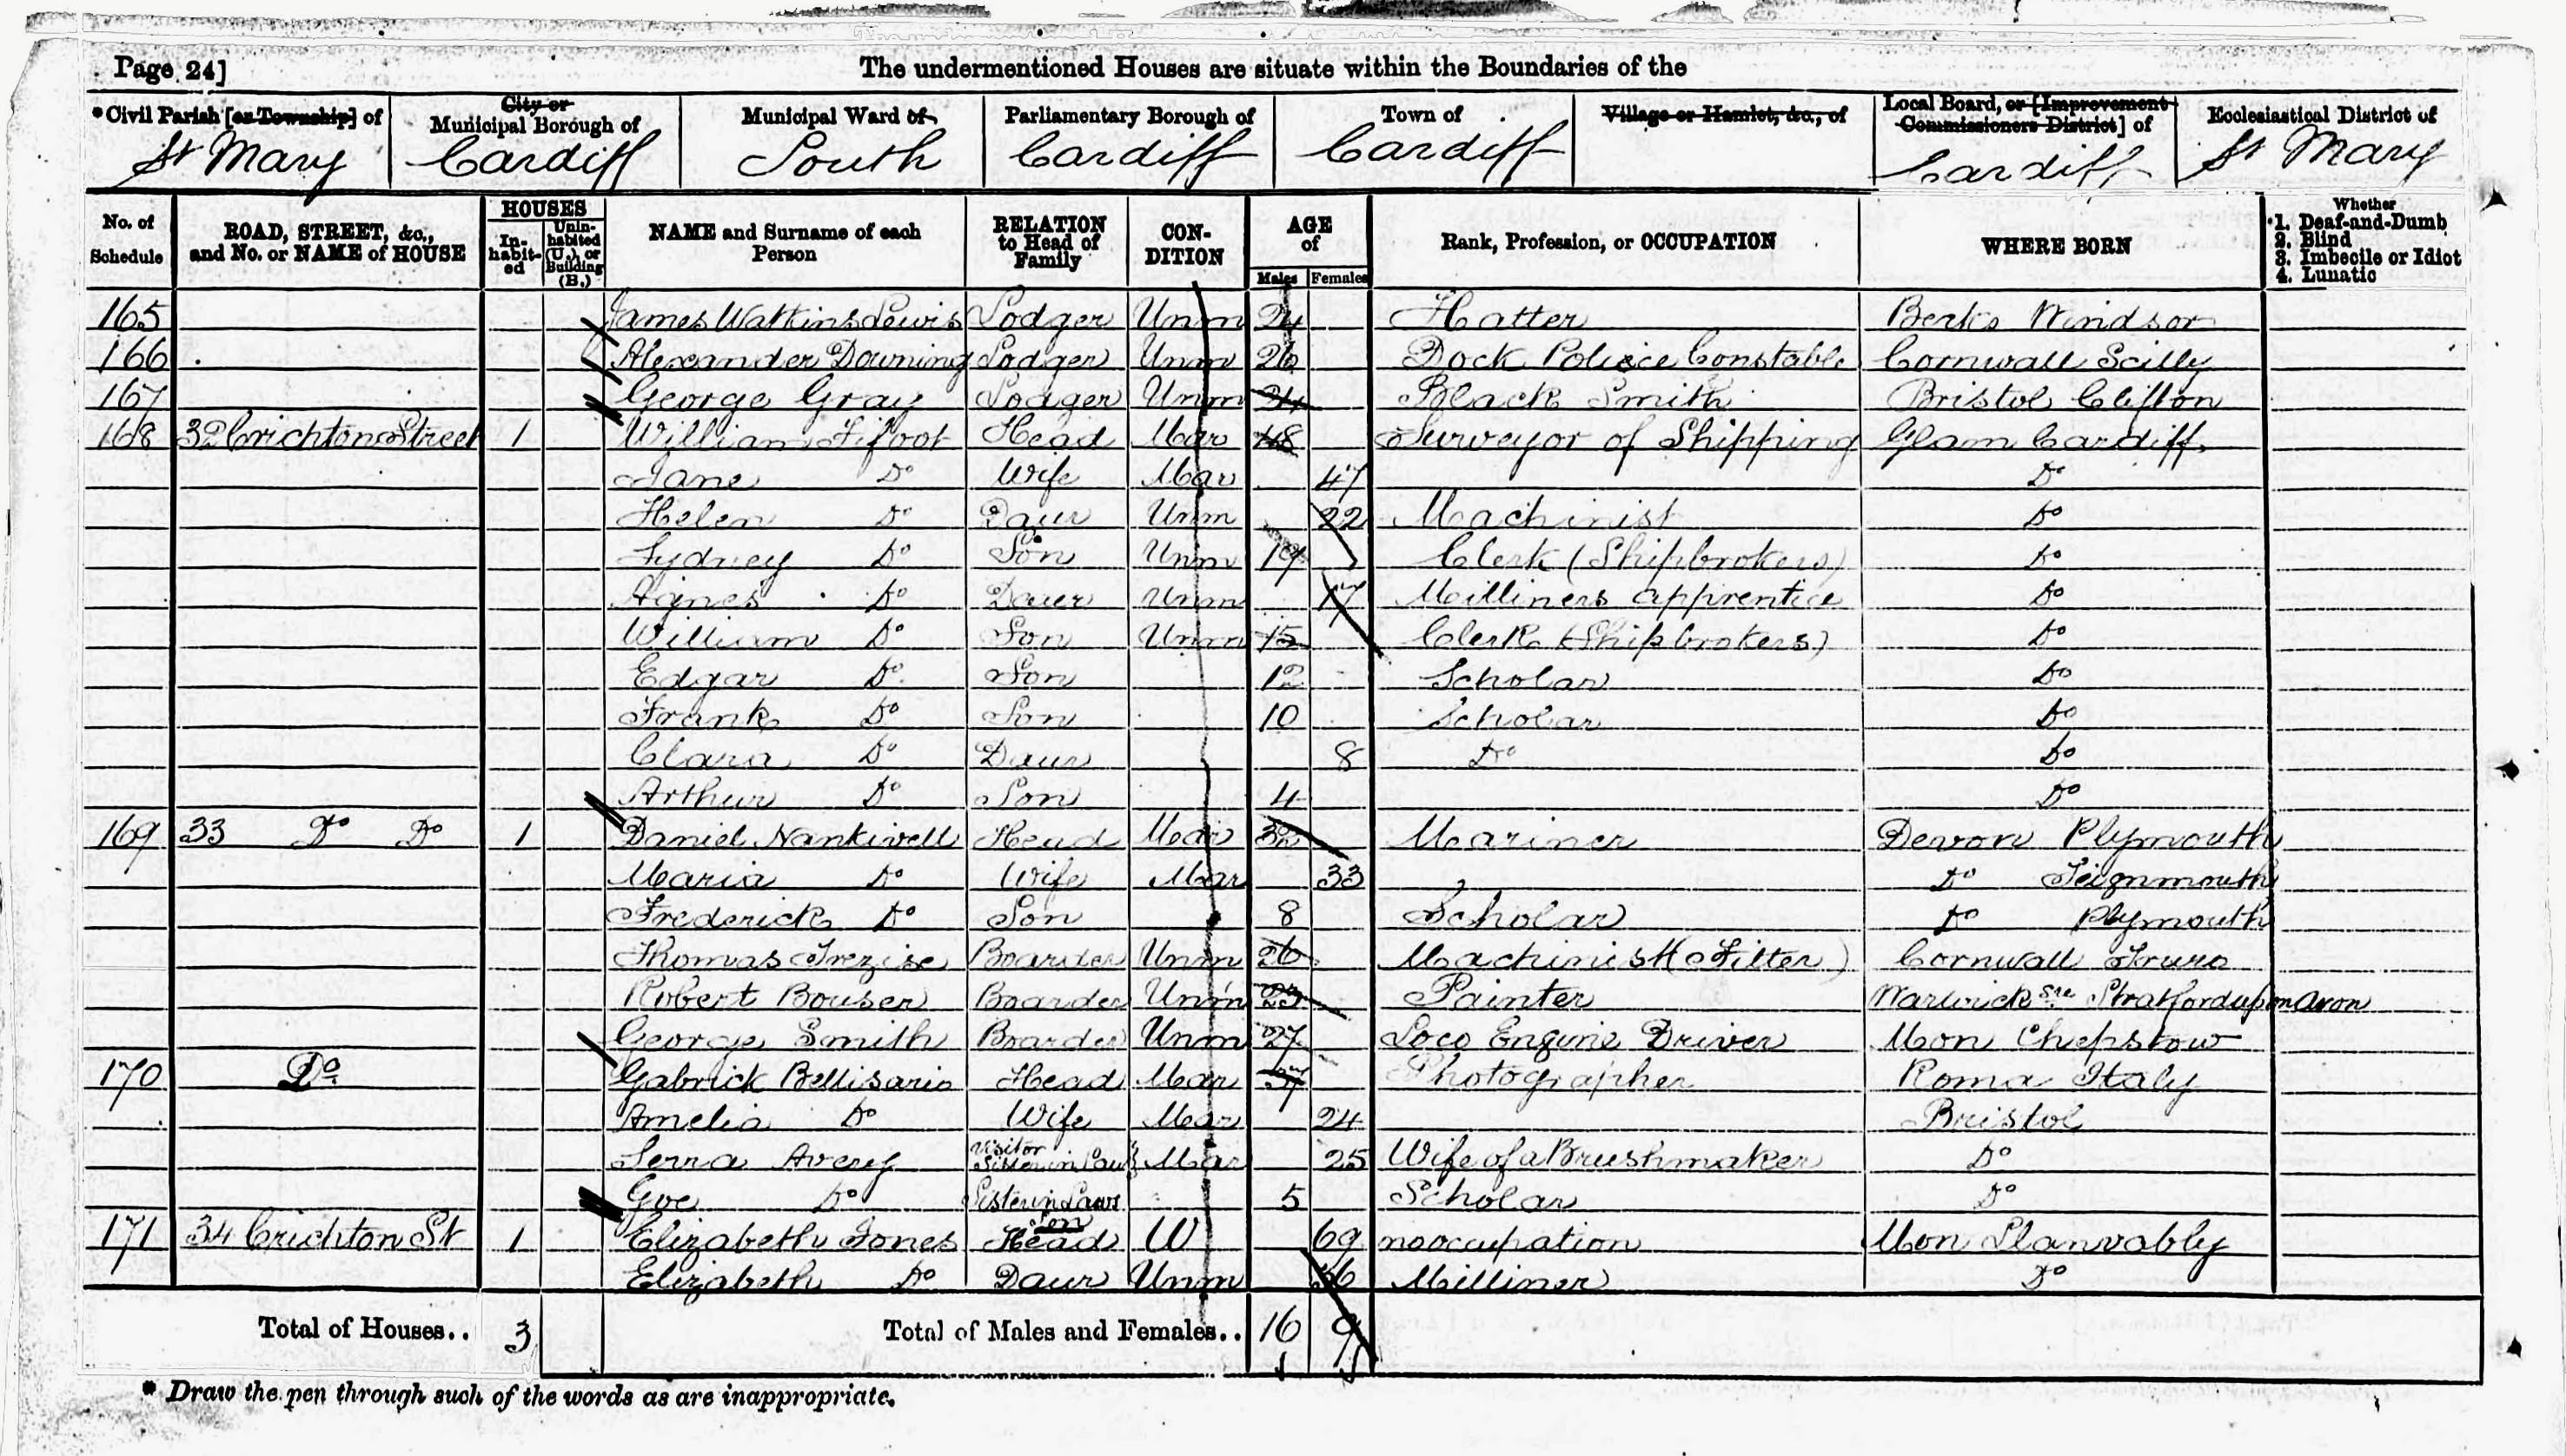 Page 24]
The undermentioned Houses are situate within the Boundaries of the
*Civil Parish [or Township] of St Mary
City or Municipal Borough of Cardiff
Municipal Ward of South
Parliamentary Borough of Cardiff
Town of Cardiff
Village or Hamlet, &c., of
Local Board, or [Improvement Commissioners District] of Cardiff
Ecclesiastical District of St Mary
No. of Schedule
ROAD, STREET, &c., and No. or NAME of HOUSE
HOUSES
In-habit-ed
Unin-habited (U.), or Building (B.)
NAME and Surname of each Person
RELATION to Head of Family
CON-DITION
AGE of
Males Females
Rank, Profession, or OCCUPATION
WHERE BORN
Whether
1. Deaf-and-Dumb
2. Blind
3. Imbecile or Idiot
4. Lunatic
165 James Watkins Lewis Lodger Unm 24 Hatter Berks Windsor
166 Alexander Downing Lodger Unm 26 Dock Police Constable Cornwall Scilly
167 George Gray Lodger Unm Black Smith Bristol Clifton
168 32 Crichton Street 1 William Fifoot Head Mar 48 Surveyor of Shipping Glam Cardiff
Jane Do Wife Mar 47 Do
Helen Do Daur Unm 22 Machinist Do
Sydney Do Son Unm 19 Clerk (Shipbrokers) Do
Agnes Do Daur Unm 17 Milliners apprentice Do
William Do Son Unm 15 Clerk (Shipbrokers) Do
Edgar Do Son 12 Scholar Do
Frank Do Son 10 Scholar Do
Clara Do Daur 8 Do Do
Arthur Do Son 4 Do
169 33 Do Do 1 Daniel Nankivell Head Mar 32 Mariner Devon Plymouth
Maria Do Wife Mar 33 Do Teignmouth
Frederick Do Son 8 Scholar Do Plymouth
Thomas Trezise Boarder Unm 26 Machinist (Fitter) Cornwall Truro
Robert Bouser Boarder Unm Painter Warwick sre Stratford upon avon
George Smith Boarder Unm 27 Loco Engine Driver Mon Chepstow
170 Do Gabrick Bellisario Head Mar 37 Photographer Roma Italy
Amelia Do Wife Mar 24 Bristol
Serra Avery Visitor Sister in Law Mar 25 Wife of a Brushmaker Do
Goe Do Sister in Laws Son 5 Scholar Do
171 34 Crichton St 1 Elizabeth Jones Head W 69 no occupation Mon Llanvably
Elizabeth Do Daur Unm 36 Milliner Do
Total of Houses.. 3 Total of Males and Females.. 16 9
* Draw the pen through such of the words as are inappropriate.